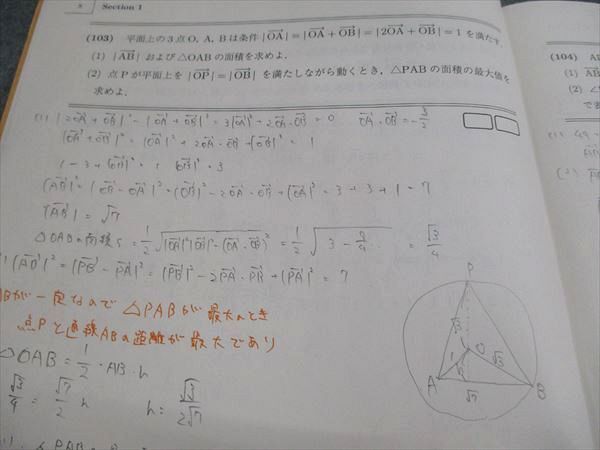 8 Section 1
(103) 平面上の3点O, A, Bは条件 |OA| = |OA + OB| = |2OA + OB| = 1 を満たす.
(1) |AB| および△OABの面積を求めよ.
(2) 点Pが平面上を |OP| = |OB| を満たしながら動くとき, △PABの面積の最大値を
求めよ.
(1) |2OA + OB|² - |OA + OB|² = 3|OA|² + 2OA・OB = 0 OA・OB = -3/2
|OA + OB|² = |OA|² + 2OA・OB + |OB|² = 1
1 - 3 + |OB|² = 1 |OB|² = 3
|AB|² = |OB - OA|² = |OB|² - 2OA・OB + |OA|² = 3 + 3 + 1 = 7
|AB| = √7
△OABの面積 S = 1/2 √|OA|²|OB|² - (OA・OB)² = 1/2 √3 - 9/4 = √3/4
= |PB - PA|² = |PB|² - 2PA・PB + |PA|² = 7
ABが一定なので△PABが最大のとき
点Pと直線ABの距離が最大であり
△OAB = 1/2・AB・h
√3/4 = √7/2 h h = √3/2√7
P
√3
1
O
√3
h
A
B
√7
(104)
(1)
(2)